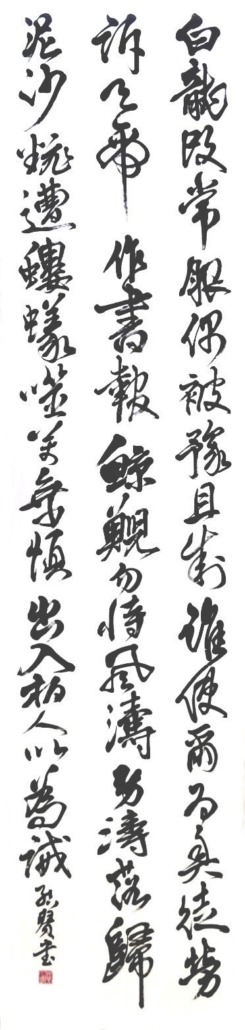 白龍改常服偶被豫且制誰使爾為魚徒勞
訴天帝作書報鯨鯢勿恃風濤勢濤落歸
泥沙翻遭螻蟻噬萬乘慎出入柏人以為誡 賢書